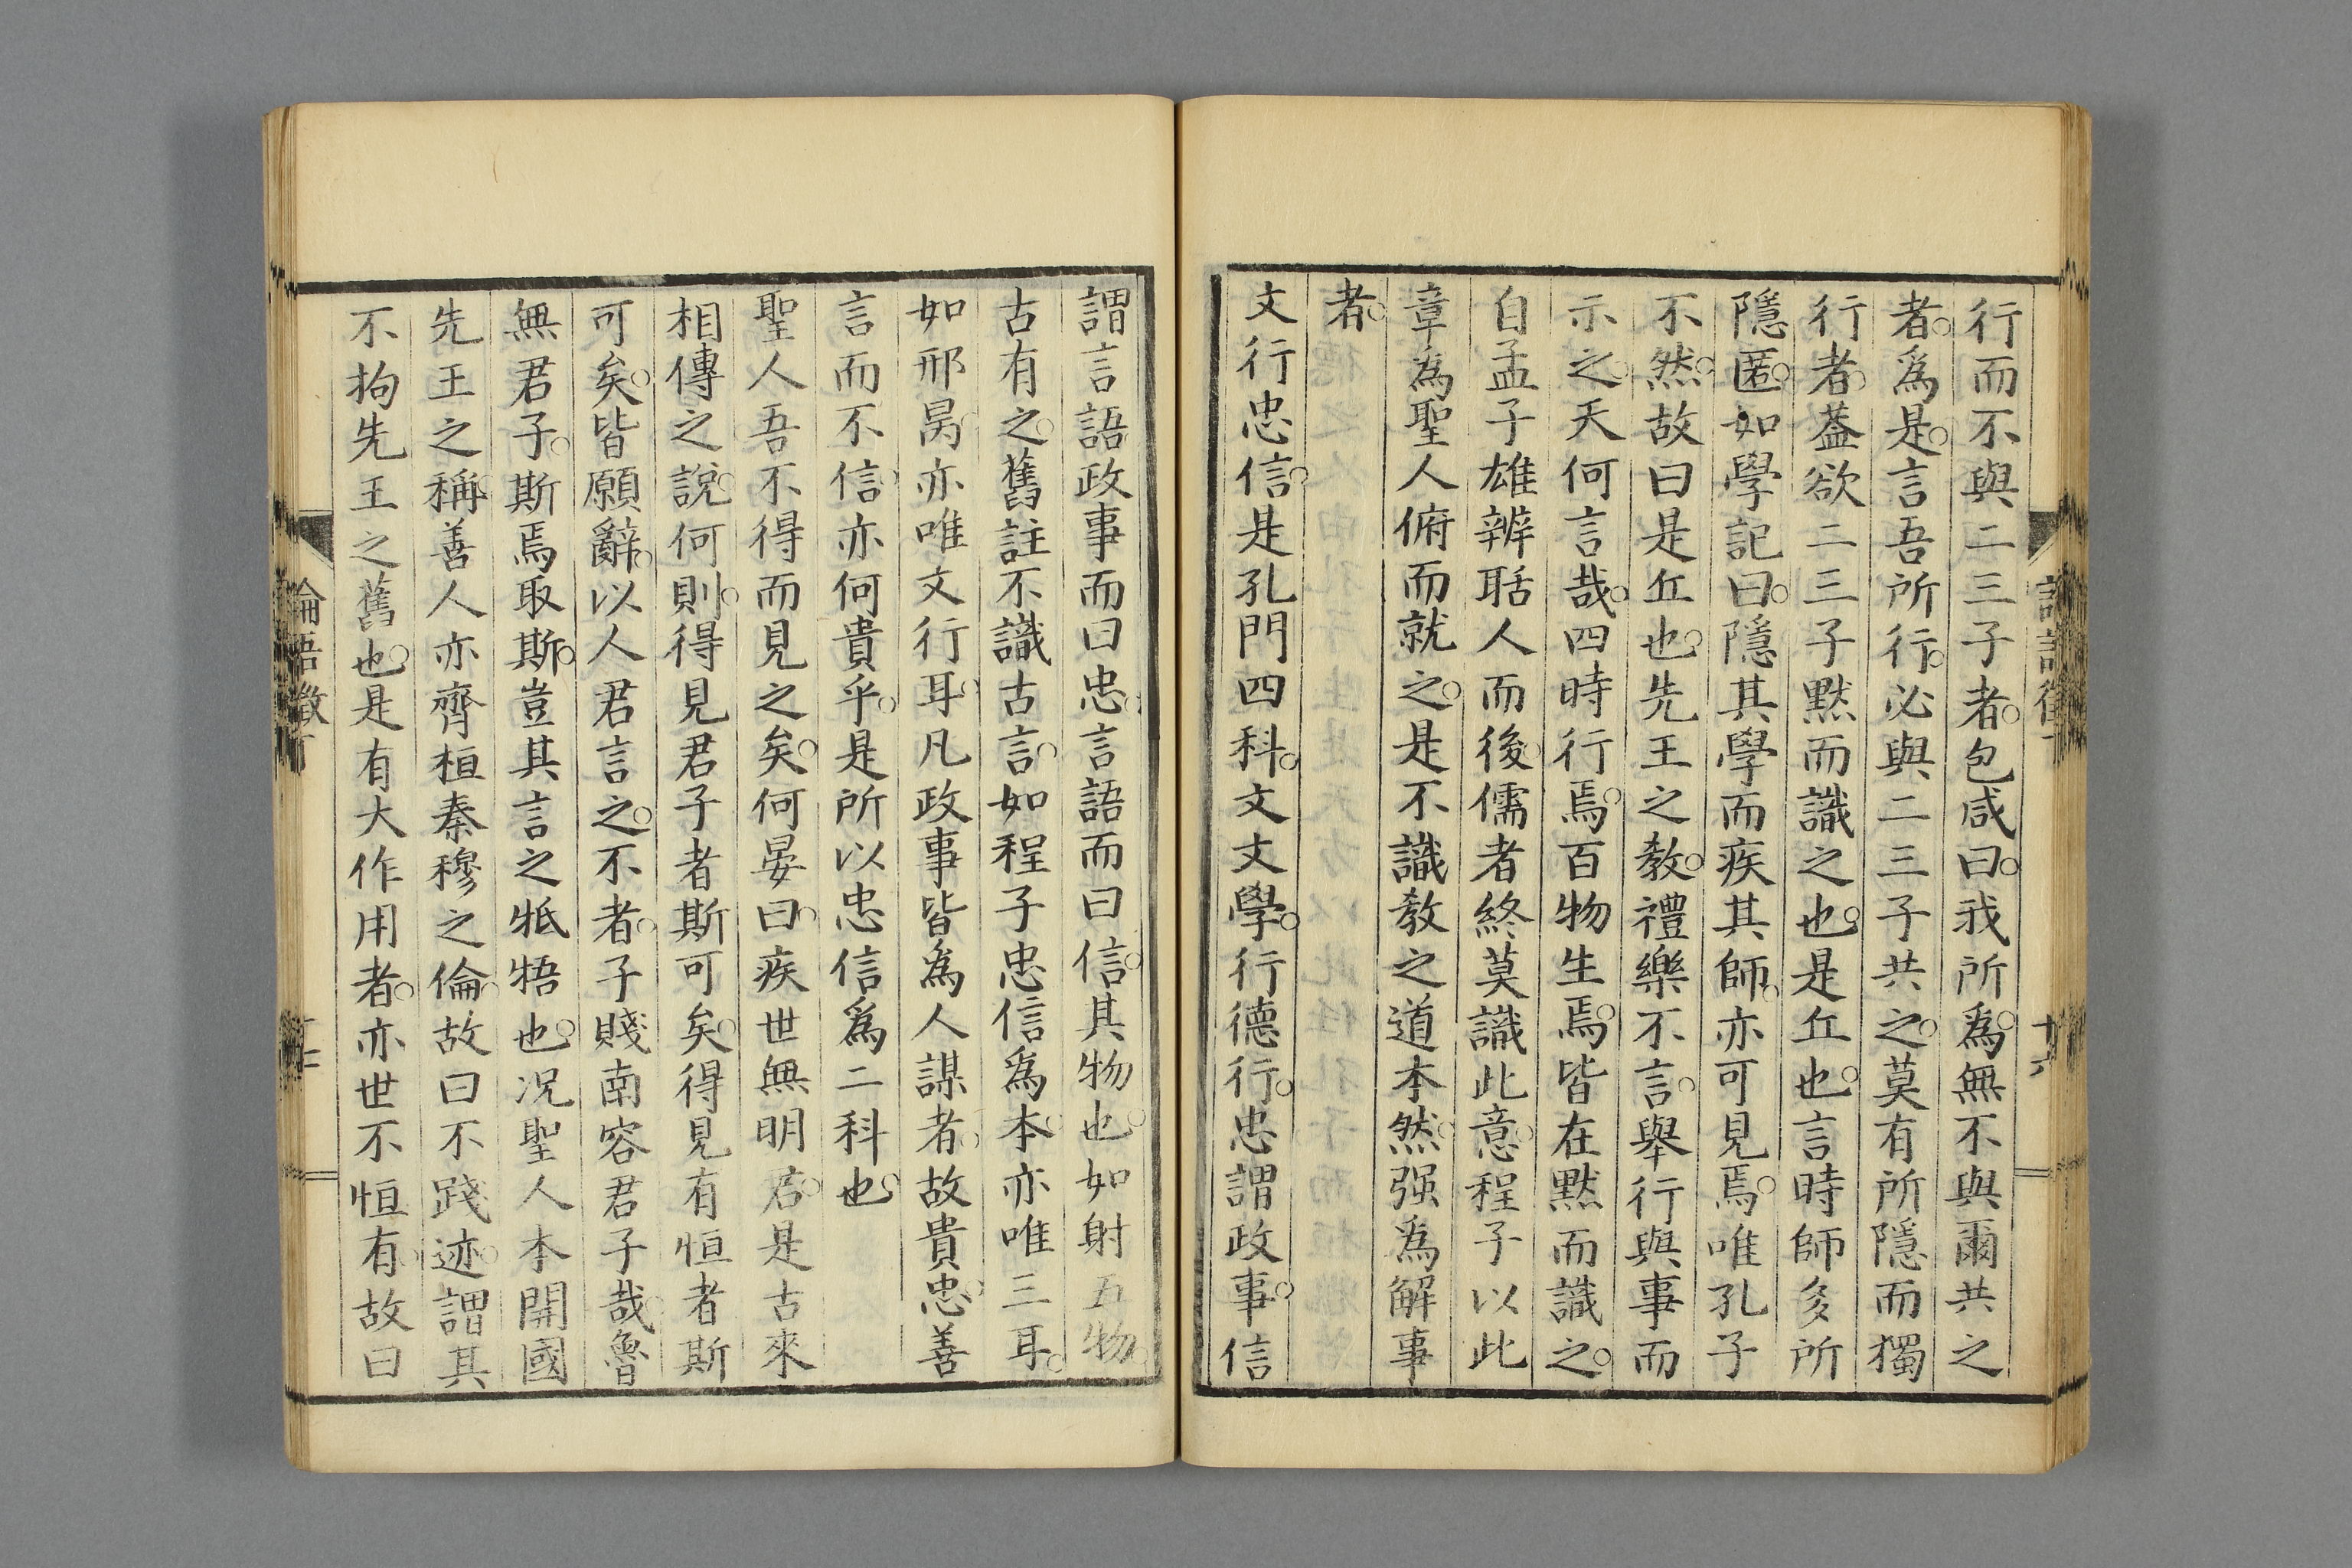 行而不與二三子者包咸曰我所爲無不與爾共之
者爲是言吾所行必與二三子共之莫有所隱而獨
行者葢欲二三子默而識之也是丘也言時師多所
隱匿如學記曰隱其學而疾其師亦可見焉唯孔子
不然故曰是丘也先王之教禮樂不言舉行與事而
示之天何言哉四時行焉百物生焉皆在默而識之
自孟子雄辨聒人而後儒者終莫識此意程子以此
章爲聖人俯而就之是不識教之道本然强爲解事
者
文行忠信是孔門四科文文學行德行忠謂政事信
謂言語政事而曰忠言語而曰信其物也如射五物
古有之舊註不識古言如程子忠信爲本亦唯三耳
如邢昺亦唯文行耳凡政事皆爲人謀者故貴忠善
言而不信亦何貴乎是所以忠信爲二科也
聖人吾不得而見之矣何晏曰疾世無明君是古來
相傳之說何則得見君子者斯可矣得見有恒者斯
可矣皆願辭以人君言之不者子賤南容君子哉魯
無君子斯焉取斯豈其言之牴牾也況聖人本開國
先王之稱善人亦齊桓秦穆之倫故曰不踐迹謂其
不拘先王之舊也是有大作用者亦世不恒有故曰
論語徵丁